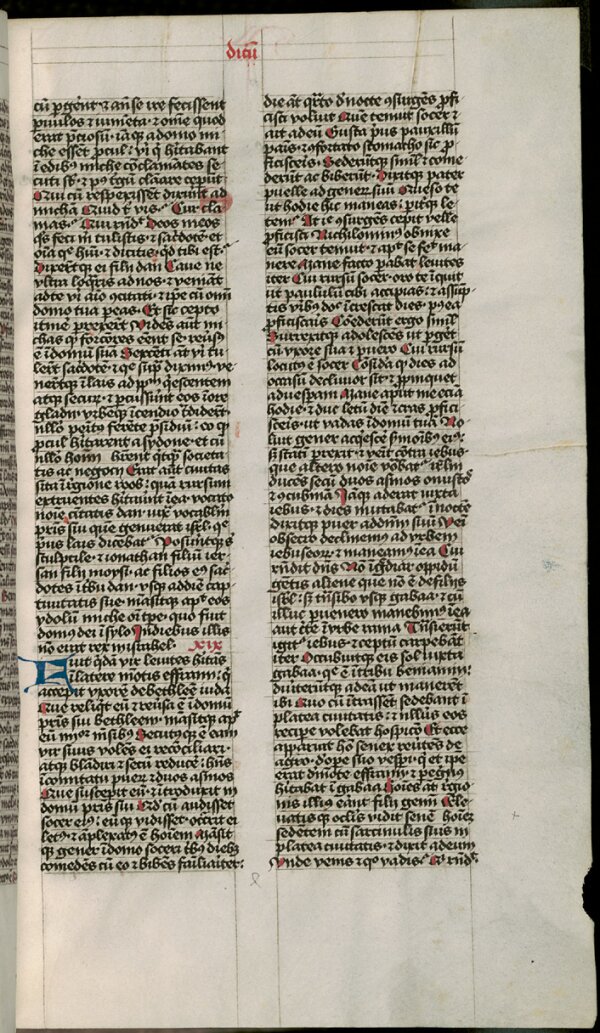 dicū
cū ꝑgerēt · et an̄ se ire fecissent
ꝑuulos ⁊ iumēta · ⁊ om̄e quod
erat p̄ciosū · iāqꝫ a domo mi
che essēt ꝓcul · vi q̄ hītabant
ī edibꝰ miche cōclamātes se
cuti sūt · ⁊ pꝰ tgū clamare ceperūt
Qui cū respexisset dixerūt ad
micham Quid t vis · Cur cla
mas · Qui rn̄dꝫ Deos meos
qs feci m̄ tulistis · ⁊ sacdotē · et
oīa q̄ hēo · ⁊ dicitis · qd tibi est ·
Dixerūtqꝫ ei filij dan Caue ne
vltra loq̄ris ad nos · ⁊ veniāt
ad te viri aīo ꝯcitati · ⁊ ip̄e cū om̄i
domo tua ꝑeas · Et sic cepto
itinē ꝑrexerūt Vidēs aūt mi
chas ꝙ forciores eēnt se reūsꝰ
ē ī domū suā Sexcēti aūt viri tu
lerūt sacdotē · ⁊ q̄ supͣ diximꝰ · ve
nerūtqꝫ ī lais ad ppl̄m q̇escentem
atqꝫ securū · ⁊ ꝑcusserūt eos ī ore
gladij · vrbēqꝫ īcendio tdiderūt
nullo penitꝰ ferēte p̄sidiū · eo ꝙ
ꝓcul hītarent a sydone · et cū
nullo hom̄ hr̄ent q̇cqͣ societa
tis ac negocij Erat aūt ciuitas
sita ī rigione roob · quā rursum
extruentes hītauerūt ī ea · vocato
noīe ciuitatis dan · iuxͣ vocablm̄
pr̄is sui que genuerat isrl̄ · q̄
pͥus lais dicebatᷣ Posuerūtqꝫ s
sculptile · ⁊ ionathan filium ier
san filij moysi · ac filios eꝰ sac
dotes ī tbu dan · vsqꝫ ad diē cap
tiuitatis sue · mansitqꝫ apͩ eos
ydolum miche oī tp̄e · quo fuit
domꝰ dei ī sylo In diebus illis
nō erat rex in israhel · XIX
Fuit qdā vir leuites hītās
ī latere montis effraym · q̄
accepit vxorē de bethleem iuda
Que reliq̇t eū · ⁊ reūsa ē ī domū
pr̄is sui bethleem · mansitqꝫ apͩ
eū iiijᵒʳ mēsibꝰ Secutusqꝫ ē eam
vir suus volēs ei recōciliari ·
atqꝫ blādiri · ⁊ secū reducē · hn̄s
ī comitatu puerū · ⁊ duos asinos
Que suscepit eū · ⁊ ītroduxit in
domū pr̄is sui Qd cū audisset
socer eiꝰ · eūqꝫ vidisset · occurrit ei
letꝰ · ⁊ āplexatꝰ ē hoīem Māsit
qꝫ gener ī domo soceri tbꝰ diebꝫ
comedēs cū eo ⁊ bibēs familiariter ·
die aūt q̄rto d̄ nocte ꝯsurgēs ꝓfi
cisci voluit Quē tenuit socer ⁊
ait ad eū Gusta pͥus pauxillū
panis · ⁊ ꝯfortato stomacho sic ꝓ
ficisceris · Sederūtqꝫ simul ⁊ come
derūt ac biberūt · Dixitqꝫ pater
puelle ad generū suū Queso te
ut hodie hic maneas · pariterqꝫ le
temᷣ At ille ꝯsurgēs cepit velle
ꝓficisci · Nichilominꝰ obnixe
eū socer tenuit · ⁊ apͩ se fec̄ ma
nere Mane facto ꝑabat leuites
iter Cui rursū socer · oro te īquit
ut paululū cibi accipias · ⁊ assūp
tis viribꝰ donec īcrescat dies · pꝰea
ꝓficiscaris Cōederūt ergo simul
Surrexitqꝫ adolescēs ut ꝑgēt
cū vxore sua ⁊ puero Cui rursū
locutꝰ ē socer Cōsida ꝙ dies ad
occasū decliuior sit · ⁊ ꝓpinquet
ad vesperam Mane apud me eciā
hodie · ⁊ duc letū diē · ⁊ cras ꝓfici
sceris · ut vadas ī domū tuā No
luit gener acq̇escē ẜmoībꝰ eiꝰ ·
sꝫ stati ꝑrexit · ⁊ venit cōtra iebus ·
que altero noīe vōbatᷣ · ierlm̄
ducēs secū duos asinos onustos
⁊ ꝯcubinā Iāqꝫ aderat iuxta
iebus · ⁊ dies mutabatᷣ ī noctē
dixitqꝫ puer ad dominū suū Veni
obsecro declinemꝰ ad vrbem
iebuseoꝝ · ⁊ maneamꝰ ī ea Cui
rn̄dit dn̄s · Nō ītdiar oppidū
gētis aliene que nō ē de filijs
isrl̄ · sꝫ tn̄sibo vsqꝫ gabaa · ⁊ cū
illuc ꝑuenero manebimꝰ ī ea
aut certe ī vrbe rama Tn̄sierūt
igitᷣ iebus · ⁊ ceptū carpebāt
iter Occubuitqꝫ eis sol iuxta
gabaa · q̄ ē ī tribu beniamin ·
diuiterūtqꝫ ad eā ut manerēt
ibi Quo cū ītrassēt sedebant ī
platea ciuitatis · ⁊ nullus eos
recipe volebat hospicio Et ecce
apparuit hō senex reūtēs de
agro · ⁊ d̄ ope suo vesꝑi · q̇ et ip̄e
erat d̄ monte effraym · ⁊ ꝑegrinꝰ
hītabat ī gabaa Hoīes aūt rigio
nis illius erāt filij gemini Ele
uatisqꝫ oculis vidit senex hoīez
sedētem cū sarcinulis suis in
platea ciuitatis · ⁊ dixit ad eum
Vnde venis ⁊ quo vadis · Qui rn̄dꝫ